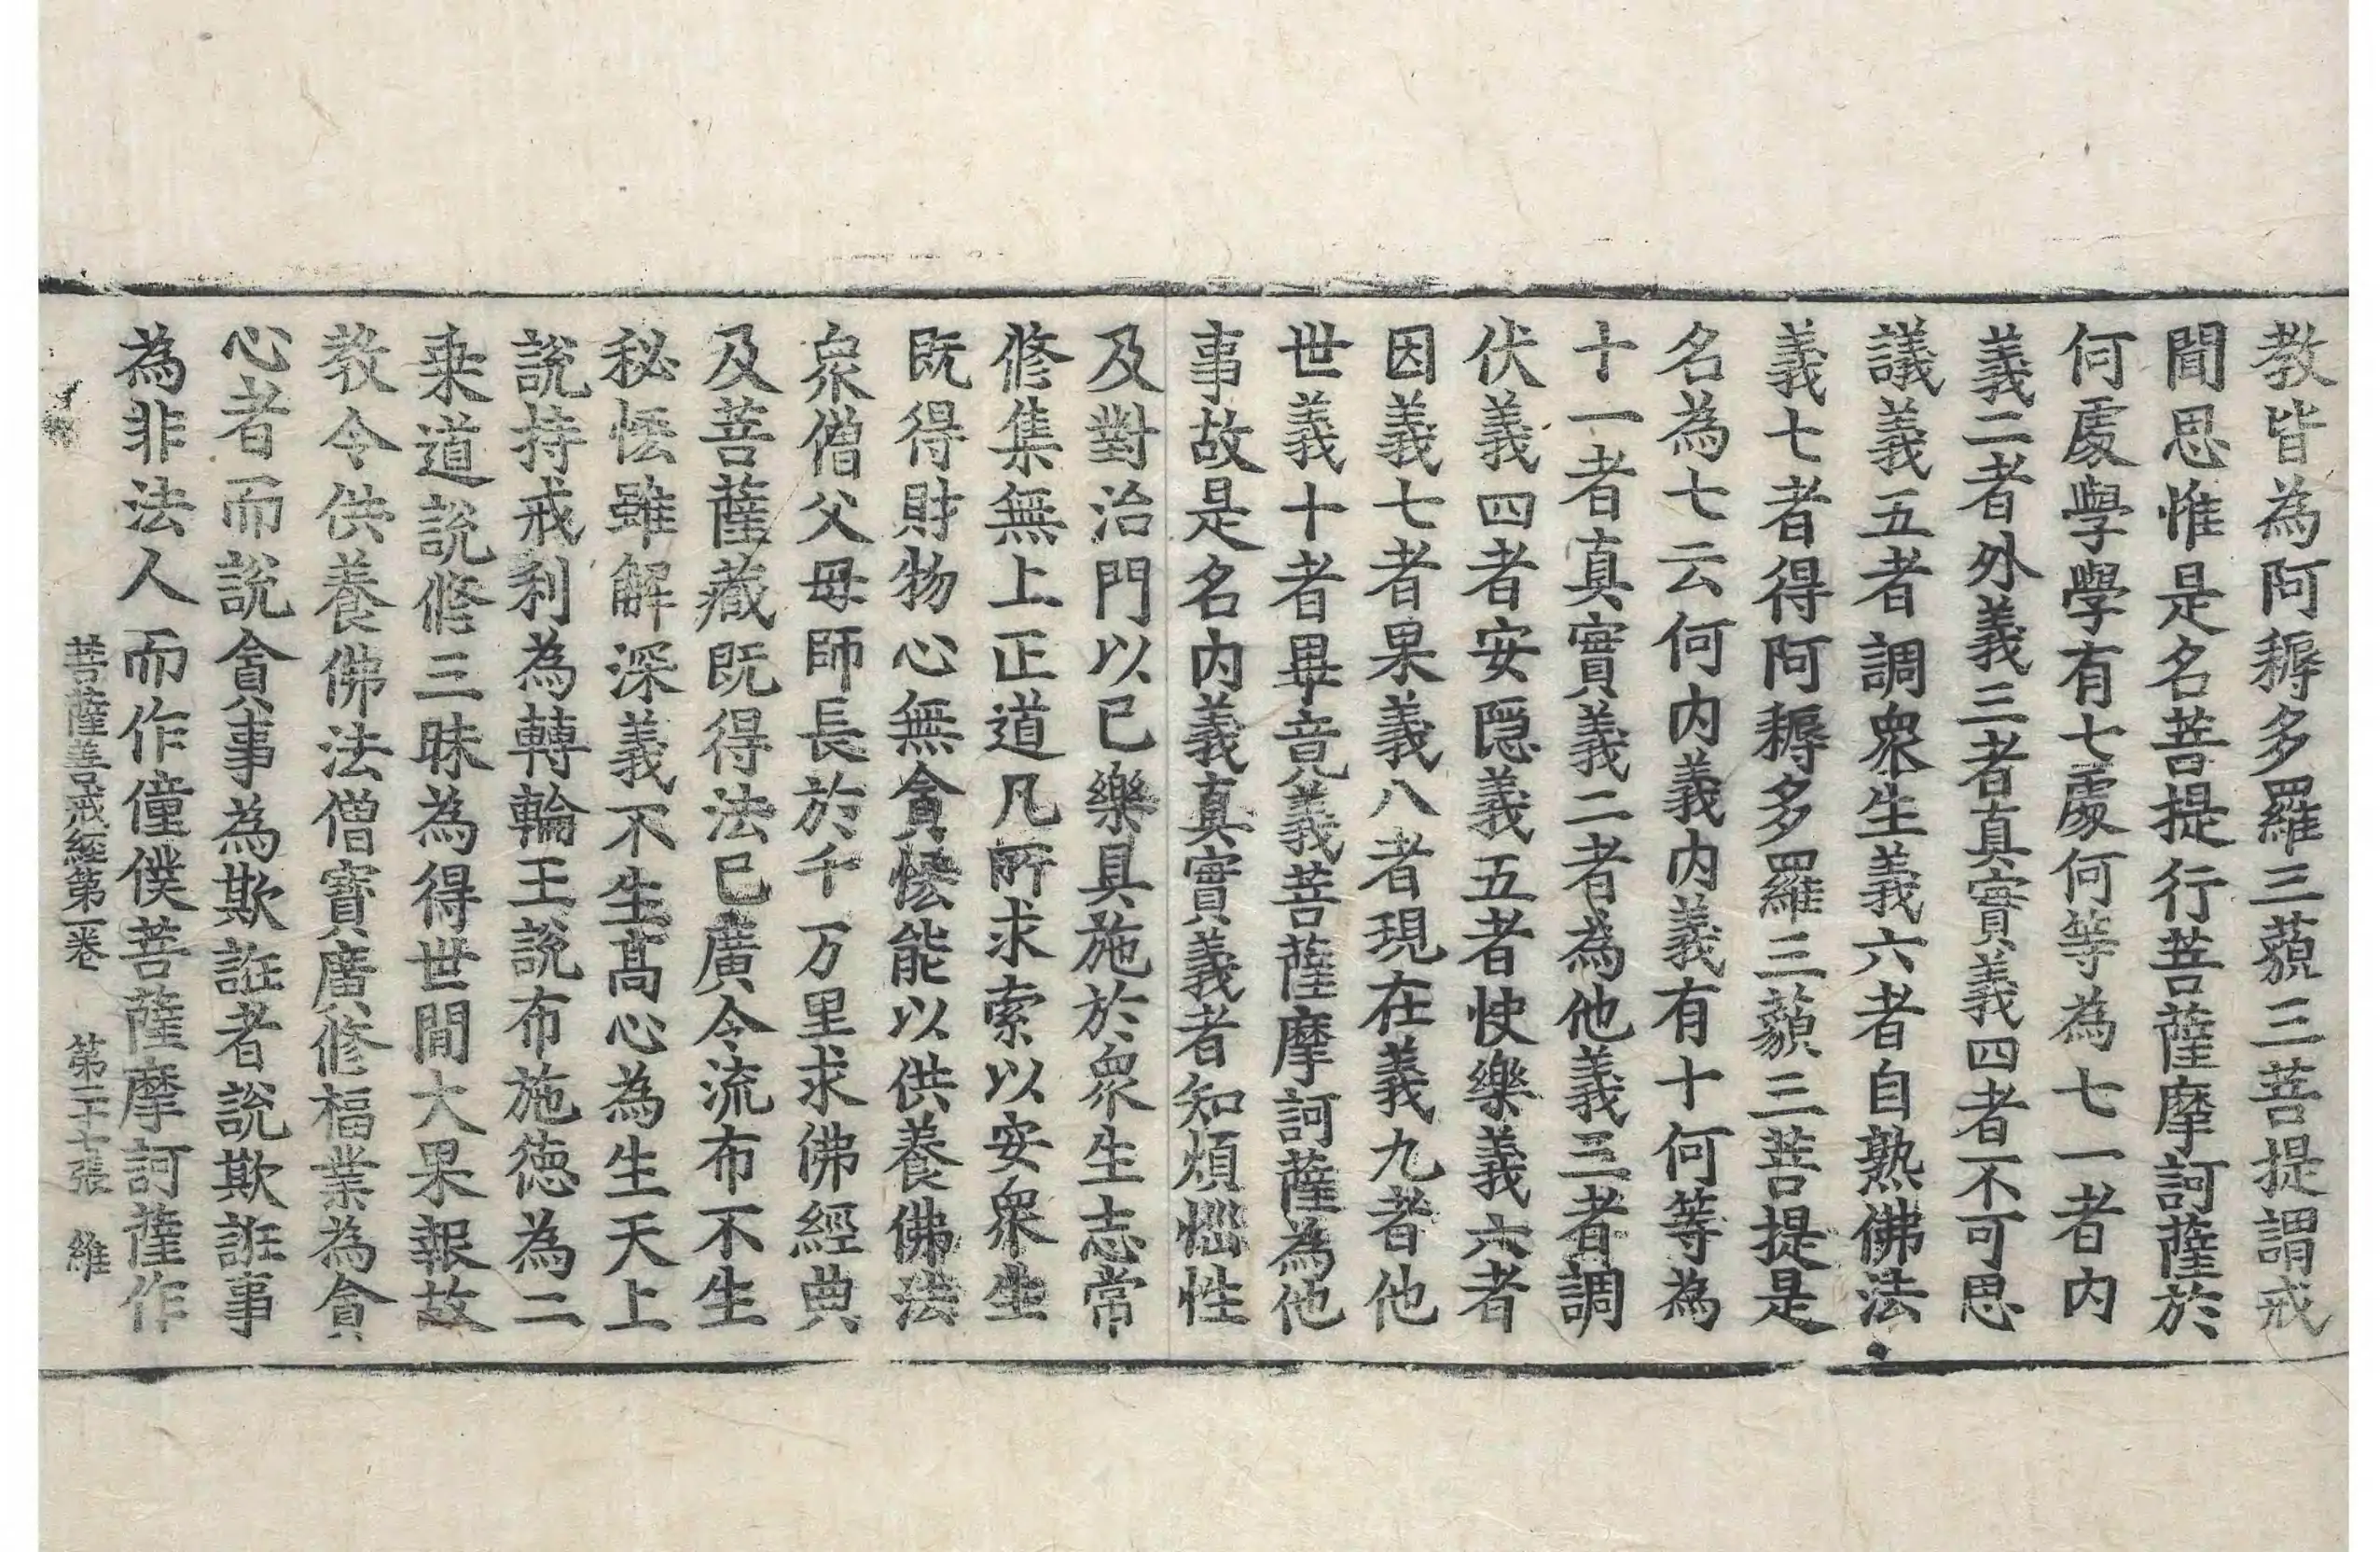 教皆為阿耨多羅三藐三菩提謂戒
聞思惟是名菩提行菩薩摩訶薩於
何處學學有七處何等為七一者内
義二者外義三者真實義四者不可思
議義五者調衆生義六者自熟佛法
義七者得阿耨多羅三藐三菩提是
名為七云何内義内義有十何等為
十一者真實義二者為他義三者調
伏義四者安隠義五者快樂義六者
因義七者果義八者現在義九者他
世義十者畢竟義菩薩摩訶薩為他
事故是名内義真實義者知煩惱性
及對治門以已樂具施於衆生志常
修集無上正道凡所求索以安衆生
既得財物心無貪悋能以供養佛法
衆僧父母師長於千万里求佛經典
及菩薩藏既得法已廣令流布不生
秘悋雖解深義不生髙心為生天上
說持戒利為轉輪王說布施徳為二
乗道說修三昧為得世間大果報故
教令供養佛法僧寶廣修福業為貪
心者而說貪事為欺誑者說欺誑事
為非法人而作僮僕菩薩摩訶薩作
菩薩善戒經第一卷　第二十七張　維